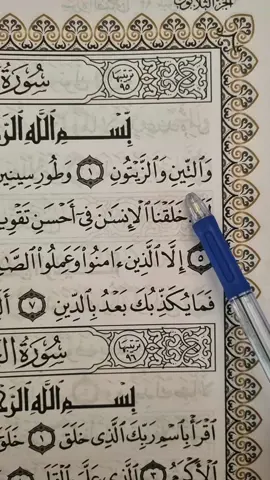 الجزء الثلاثون
سُورَةُ
ترتيبها ٩٥
بِسْمِ اللَّهِ
وَالتِّينِ وَالزَّيْتُونِ ١ وَطُورِ سِينِينَ
خَلَقْنَا الْإِنسَانَ فِي أَحْسَنِ تَقْوِيمٍ
٥ إِلَّا الَّذِينَ ءَامَنُوا وَعَمِلُوا
فَمَا يُكَذِّبُكَ بَعْدُ بِالدِّينِ ٧
سُورَةُ
ترتيبها ٩٦
بِسْمِ اللَّهِ
اقْرَأْ بِاسْمِ رَبِّكَ الَّذِي خَلَقَ ١ خَلَقَ
الْأَكْرَمُ ٣ الَّذِي عَلَّمَ